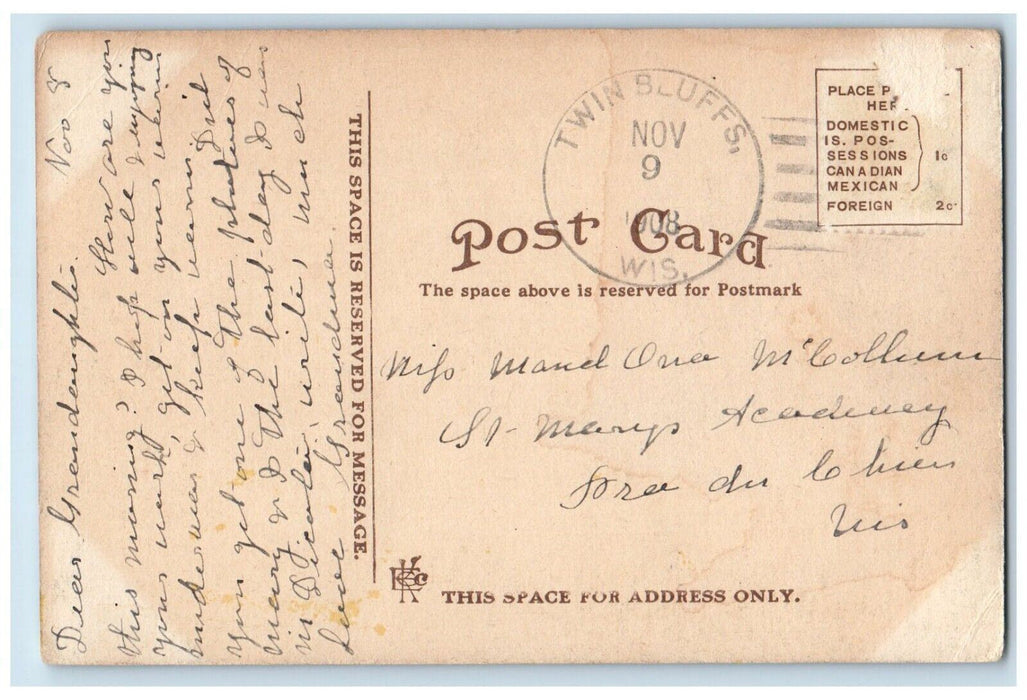 Nov 8
Dear Granddaughter.
How are you
this morning? I hope well & enjoying
your work, get on your warm
underwear & keep warm. Did
you get one of the photoes of
Mary & I the last day I was
in Decatur, write, much
love Grandma.
THIS SPACE IS RESERVED FOR MESSAGE.
TWIN BLUFFS,
NOV
9
1908
WIS.
PLACE P
HER
DOMESTIC
IS. POS-
SESSIONS 1c
CANADIAN
MEXICAN
FOREIGN 2c
Post Card
The space above is reserved for Postmark
Miss Maud Ora McCollum
St. Marys Academy
Pra du Chien
Wis
THIS SPACE FOR ADDRESS ONLY.